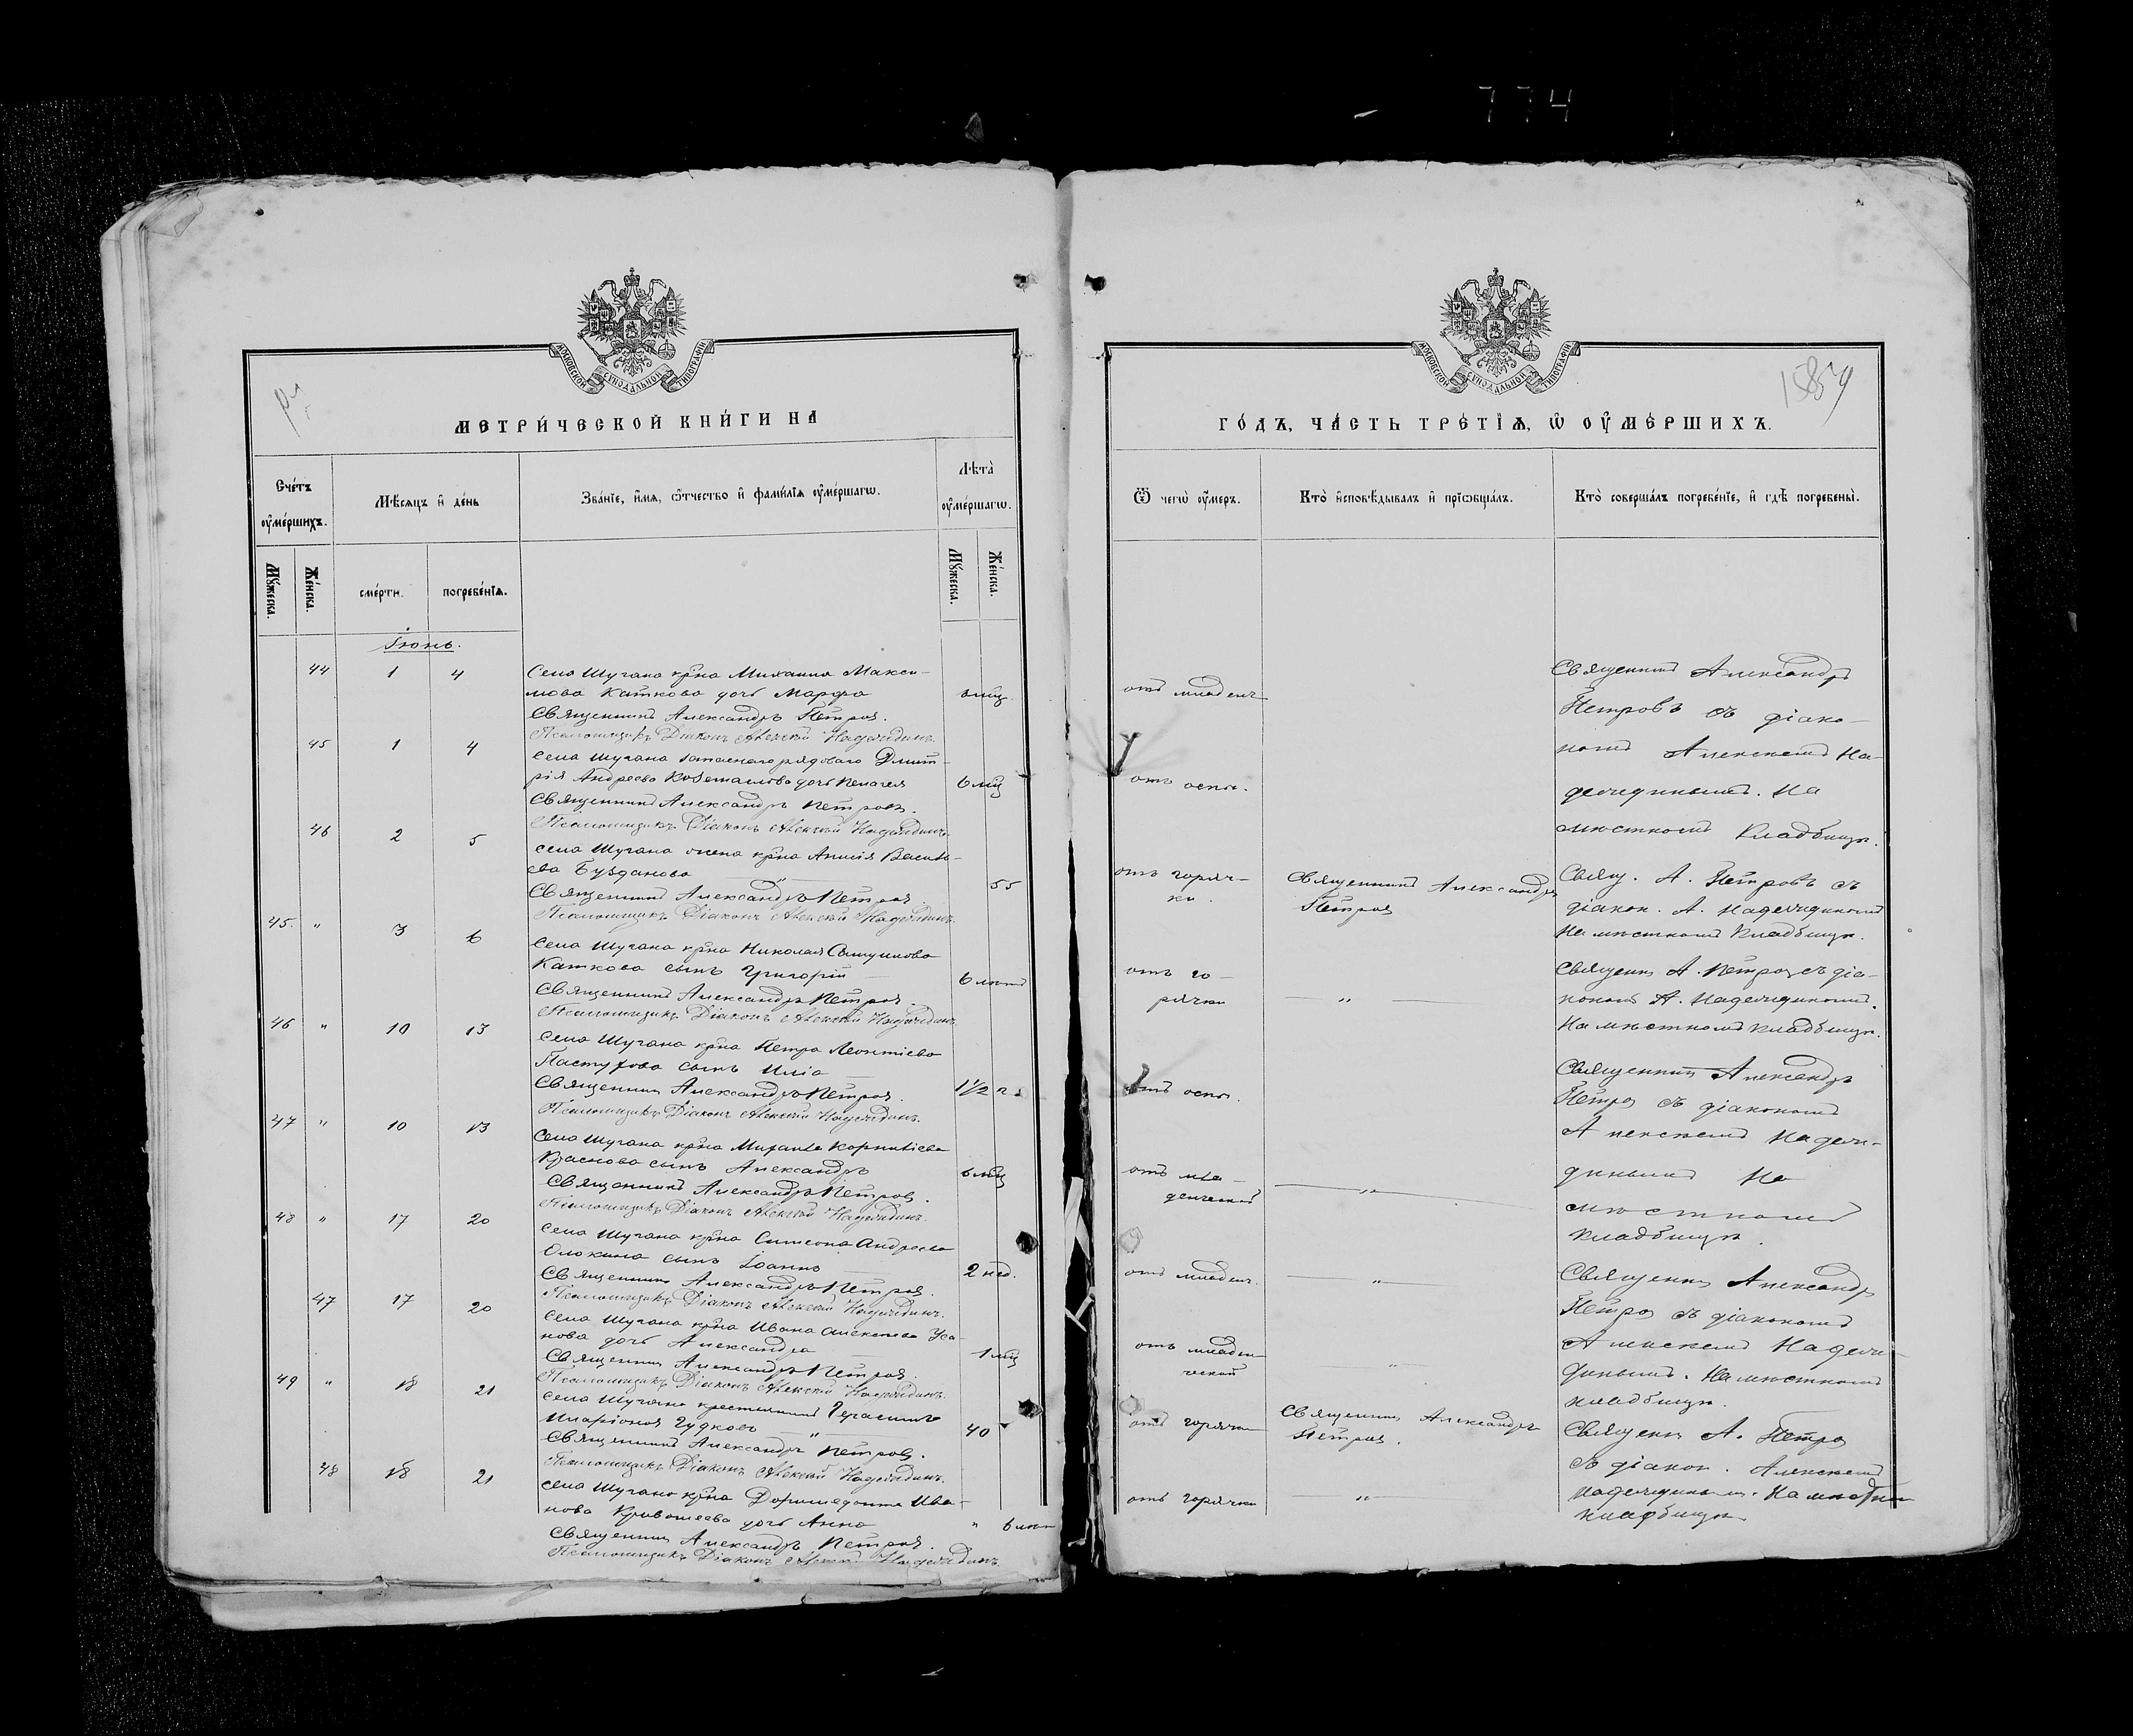 774
МОСКОВСКОЙ СѴНОДАЛЬНОЙ ТИПОГРАФІИ
МЕТРИ́ЧЕСКОЙ КНИ́ГИ НА
Сче́тъ оу҆ме́ршихъ.
Мѣ́сяцъ и҆ де́нь
Зва́нїе, и҆́мѧ, ѻ҆́тчество и҆ фами́лїѧ оу҆ме́ршагѡ.
Лѣта̀ оу҆ме́ршагѡ.
Мꙋ́жеска.
Же́нска.
сме́рти.
погребе́нїѧ.
Мꙋ́жеска.
Же́нска.
Іюнь.
44 1 4 Села Шугана кр-на Михаила Макси-
мова Каткова дочь Марфа
Священникъ Александръ Петровъ.
Псаломщикъ Діаконъ Алексѣй Надеждинъ.
45 1 4 Села Шугана запаснаго рядоваго Дмит-
рія Андреева дочь Пелагея 6 мѣс
Священникъ Александръ Петровъ.
Псаломщикъ Діаконъ Алексѣй Надеждинъ.
46 2 5 Села Шугана жена кр-на Василь-
ева Бузданова 55
Священникъ Александръ Петровъ
Псаломщикъ Діаконъ Алексѣй Надеждинъ.
45. " 3 6 Села Шугана кр-на Николая
Каткова сынъ Григорій 6 лѣтъ
Священникъ Александръ Петровъ.
Псаломщикъ Діаконъ Алексѣй Надеждинъ.
46 " 10 13 Села Шугана кр-на Петра Леонтіева
Пастухова сынъ Илія 1 1/2 г.
Священникъ Александръ Петровъ.
Псаломщикъ Діаконъ Алексѣй Надеждинъ.
47 " 10 13 Села Шугана кр-на Михаила Корнилієва
Краснова сынъ Александръ 6 мѣс
Священникъ Александръ Петровъ.
Псаломщикъ Діаконъ Алексѣй Надеждинъ.
48 " 17 20 Села Шугана кр-на Симеона Андреева
сынъ Іоаннъ 2 нед.
Священникъ Александръ Петровъ.
Псаломщикъ Діаконъ Алексѣй Надеждинъ.
47 17 20 Села Шугана кр-на Ивана Алексѣева
нова дочь Александра 1 мѣс
Священникъ Александръ Петровъ.
Псаломщикъ Діаконъ Алексѣй Надеждинъ.
49 " 18 21 Села Шугана крестьянинъ Герасимъ
Иларіоновъ Гудковъ " 40
Священникъ Александръ Петровъ.
Псаломщикъ Діаконъ Алексѣй Надеждинъ.
48 18 21 Села Шугана кр-на Доримедонта Ива-
нова Кривошеева дочь Анна " 6 лѣтъ
Священникъ Александръ Петровъ.
Псаломщикъ Діаконъ Алексѣй Надеждинъ.
МОСКОВСКОЙ СѴНОДАЛЬНОЙ ТИПОГРАФІИ
ГО́ДЪ, ЧА́СТЬ ТРЕ́ТЇѦ, Ѡ҆ ОУ҆МЕ́РШИХЪ.
Ѿ чегѡ̀ оу҆́меръ.
Кто̀ и҆сповѣ́дывалъ и҆ прїѡбща́лъ.
Кто̀ соверша́лъ погребе́нїе, и҆ гдѣ̀ погребены̀.
отъ младенч
Священникъ Александръ
Петровъ съ діако-
номъ Алексѣемъ На-
деждинымъ. На
мѣстномъ кладбищѣ.
отъ оспы.
отъ горяч-
ки.
Священникъ Александръ
Петровъ
Свящ. А. Петровъ съ
діакон. А. Надеждинымъ
На мѣстномъ кладбищѣ.
отъ го-
рячки
"
Священ. А. Петровъ съ діа-
кономъ А. Надеждинымъ.
На мѣстномъ кладбищѣ.
отъ оспы.
Священникъ Александръ
Петровъ съ діакономъ
Алексѣемъ Надеж-
динымъ На
мѣстномъ
кладбищѣ.
отъ мла-
денческой
"
отъ младенч.
"
Священникъ Александръ
Петровъ съ діакономъ
Алексѣемъ Надеж-
динымъ. На мѣстномъ
кладбищѣ.
отъ младен-
ческой
"
отъ горячки
Священникъ Александръ
Петровъ.
Священ. А. Петровъ
съ діакон. Алексѣемъ
Надеждинымъ. На мѣстном
кладбищѣ
отъ горячки
"